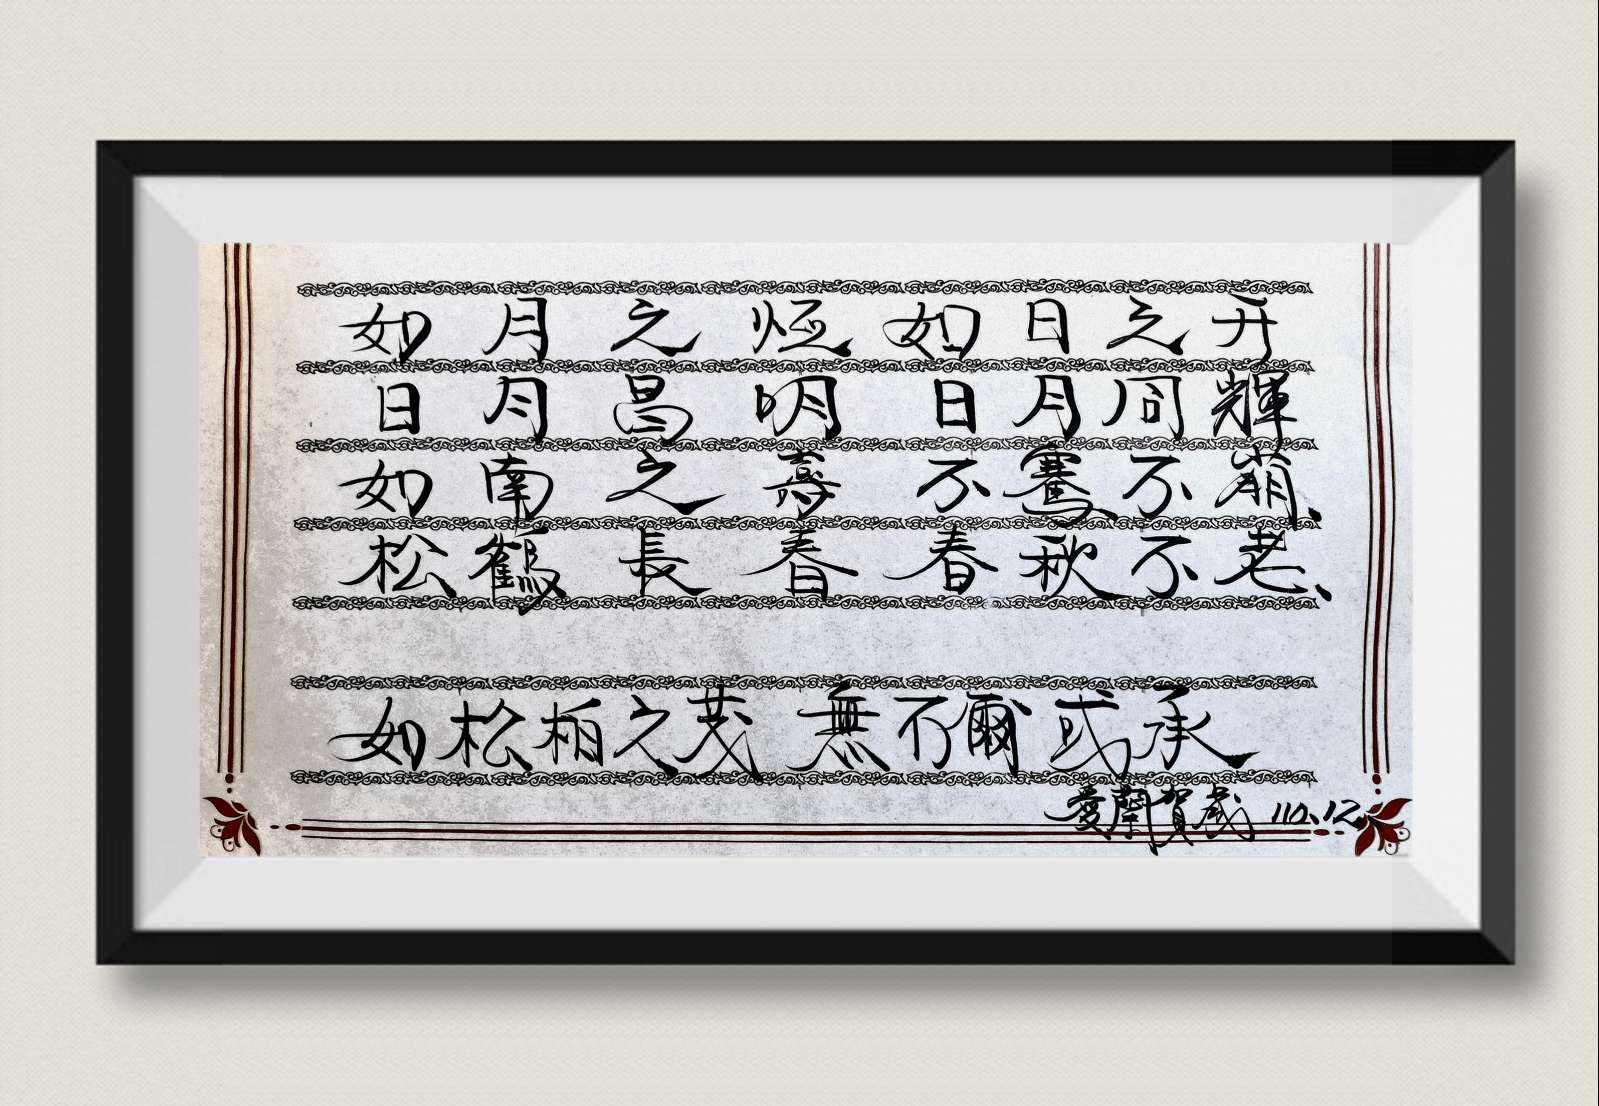 如月之恆 如日之升
日月昌明 日月同輝
如南之壽 不騫不崩、
松鶴長春 春秋不老、
如松柏之茂 無不爾或承
愛蘭賀歲 110.12